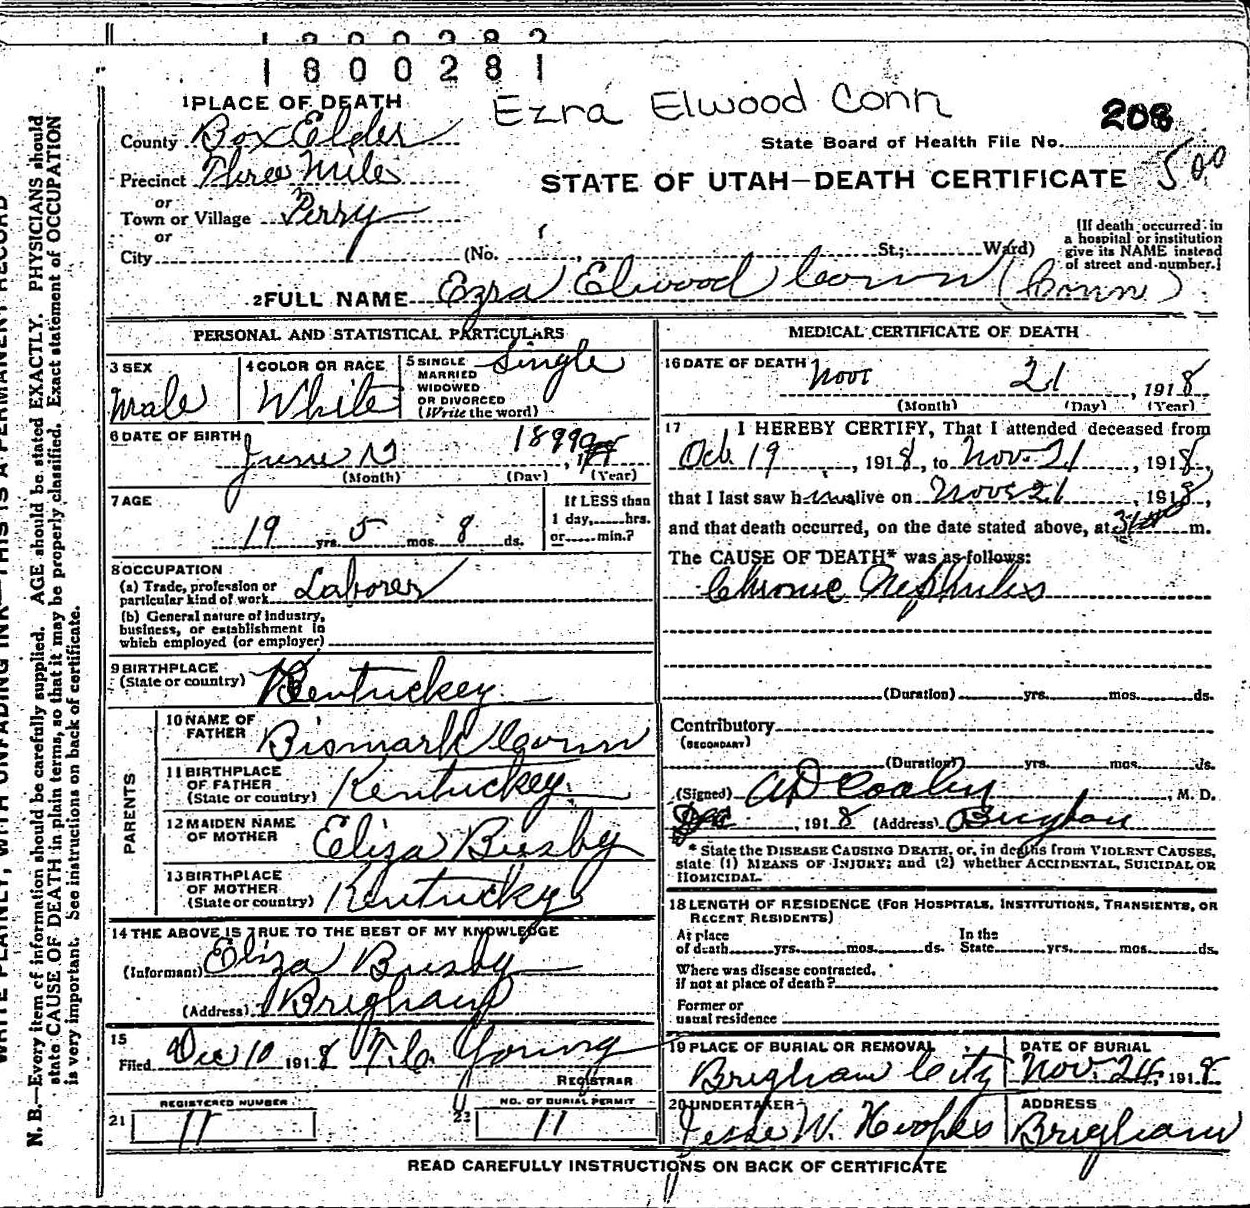 1800282
1800281
1 PLACE OF DEATH
Ezra Elwood Conn
208
County Box Elder
State Board of Health File No.
Precinct Three Mile
STATE OF UTAH—DEATH CERTIFICATE 500
or
Town or Village Perry
or
City (No. St.; Ward)
(If death occurred in a hospital or institution give its NAME instead of street and number.)
2 FULL NAME Ezra Elwood Conn (Conn)
PERSONAL AND STATISTICAL PARTICULARS
3 SEX
Male
4 COLOR OR RACE
White
5 SINGLE
MARRIED
WIDOWED
OR DIVORCED
(Write the word)
Single
6 DATE OF BIRTH
June 13 1899
(Month) (Day) (Year)
7 AGE
19 yrs. 5 mos. 8 ds.
If LESS than
1 day, hrs.
or min.?
8 OCCUPATION
(a) Trade, profession or
particular kind of work Laborer
(b) General nature of industry,
business, or establishment in
which employed (or employer)
9 BIRTHPLACE
(State or country) Kentuckey
PARENTS
10 NAME OF
FATHER Bismark Conn
11 BIRTHPLACE
OF FATHER
(State or country) Kentuckey
12 MAIDEN NAME
OF MOTHER Eliza Busby
13 BIRTHPLACE
OF MOTHER
(State or country) Kentucky
14 THE ABOVE IS TRUE TO THE BEST OF MY KNOWLEDGE
(Informant) Eliza Busby
(Address) Brigham
15
Filed Dec 10 1918 T. C. Young
REGISTRAR
REGISTERED NUMBER
21 11
NO. OF BURIAL PERMIT
22 11
MEDICAL CERTIFICATE OF DEATH
16 DATE OF DEATH
Nov 21, 1918
(Month) (Day) (Year)
17 I HEREBY CERTIFY, That I attended deceased from
Oct. 19, 1918, to Nov. 21, 1918,
that I last saw him alive on Nov 21, 1918,
and that death occurred, on the date stated above, at m.
The CAUSE OF DEATH* was as follows:
Chronic Nephritis
(Duration) yrs. mos. ds.
Contributory
(SECONDARY)
(Duration) yrs. mos. ds.
(Signed) A D Cooley, M. D.
Dec, 1918 (Address) Brigham
* State the DISEASE CAUSING DEATH, or, in deaths from VIOLENT CAUSES,
state (1) MEANS OF INJURY; and (2) whether ACCIDENTAL, SUICIDAL OR
HOMICIDAL.
18 LENGTH OF RESIDENCE (FOR HOSPITALS, INSTITUTIONS, TRANSIENTS, OR
RECENT RESIDENTS)
At place
of death yrs. mos. ds.
In the
State yrs. mos. ds.
Where was disease contracted,
if not at place of death?
Former or
usual residence
19 PLACE OF BURIAL OR REMOVAL
Brigham City
DATE OF BURIAL
Nov. 24, 1918
20 UNDERTAKER
Jesse W. Hoopes
ADDRESS
Brigham
READ CAREFULLY INSTRUCTIONS ON BACK OF CERTIFICATE
WRITE PLAINLY, WITH UNFADING INK—THIS IS A PERMANENT RECORD
N. B.—Every item of information should be carefully supplied. AGE should be stated EXACTLY. PHYSICIANS should
state CAUSE OF DEATH in plain terms, so that it may be properly classified. Exact statement of OCCUPATION
is very important. See instructions on back of certificate.